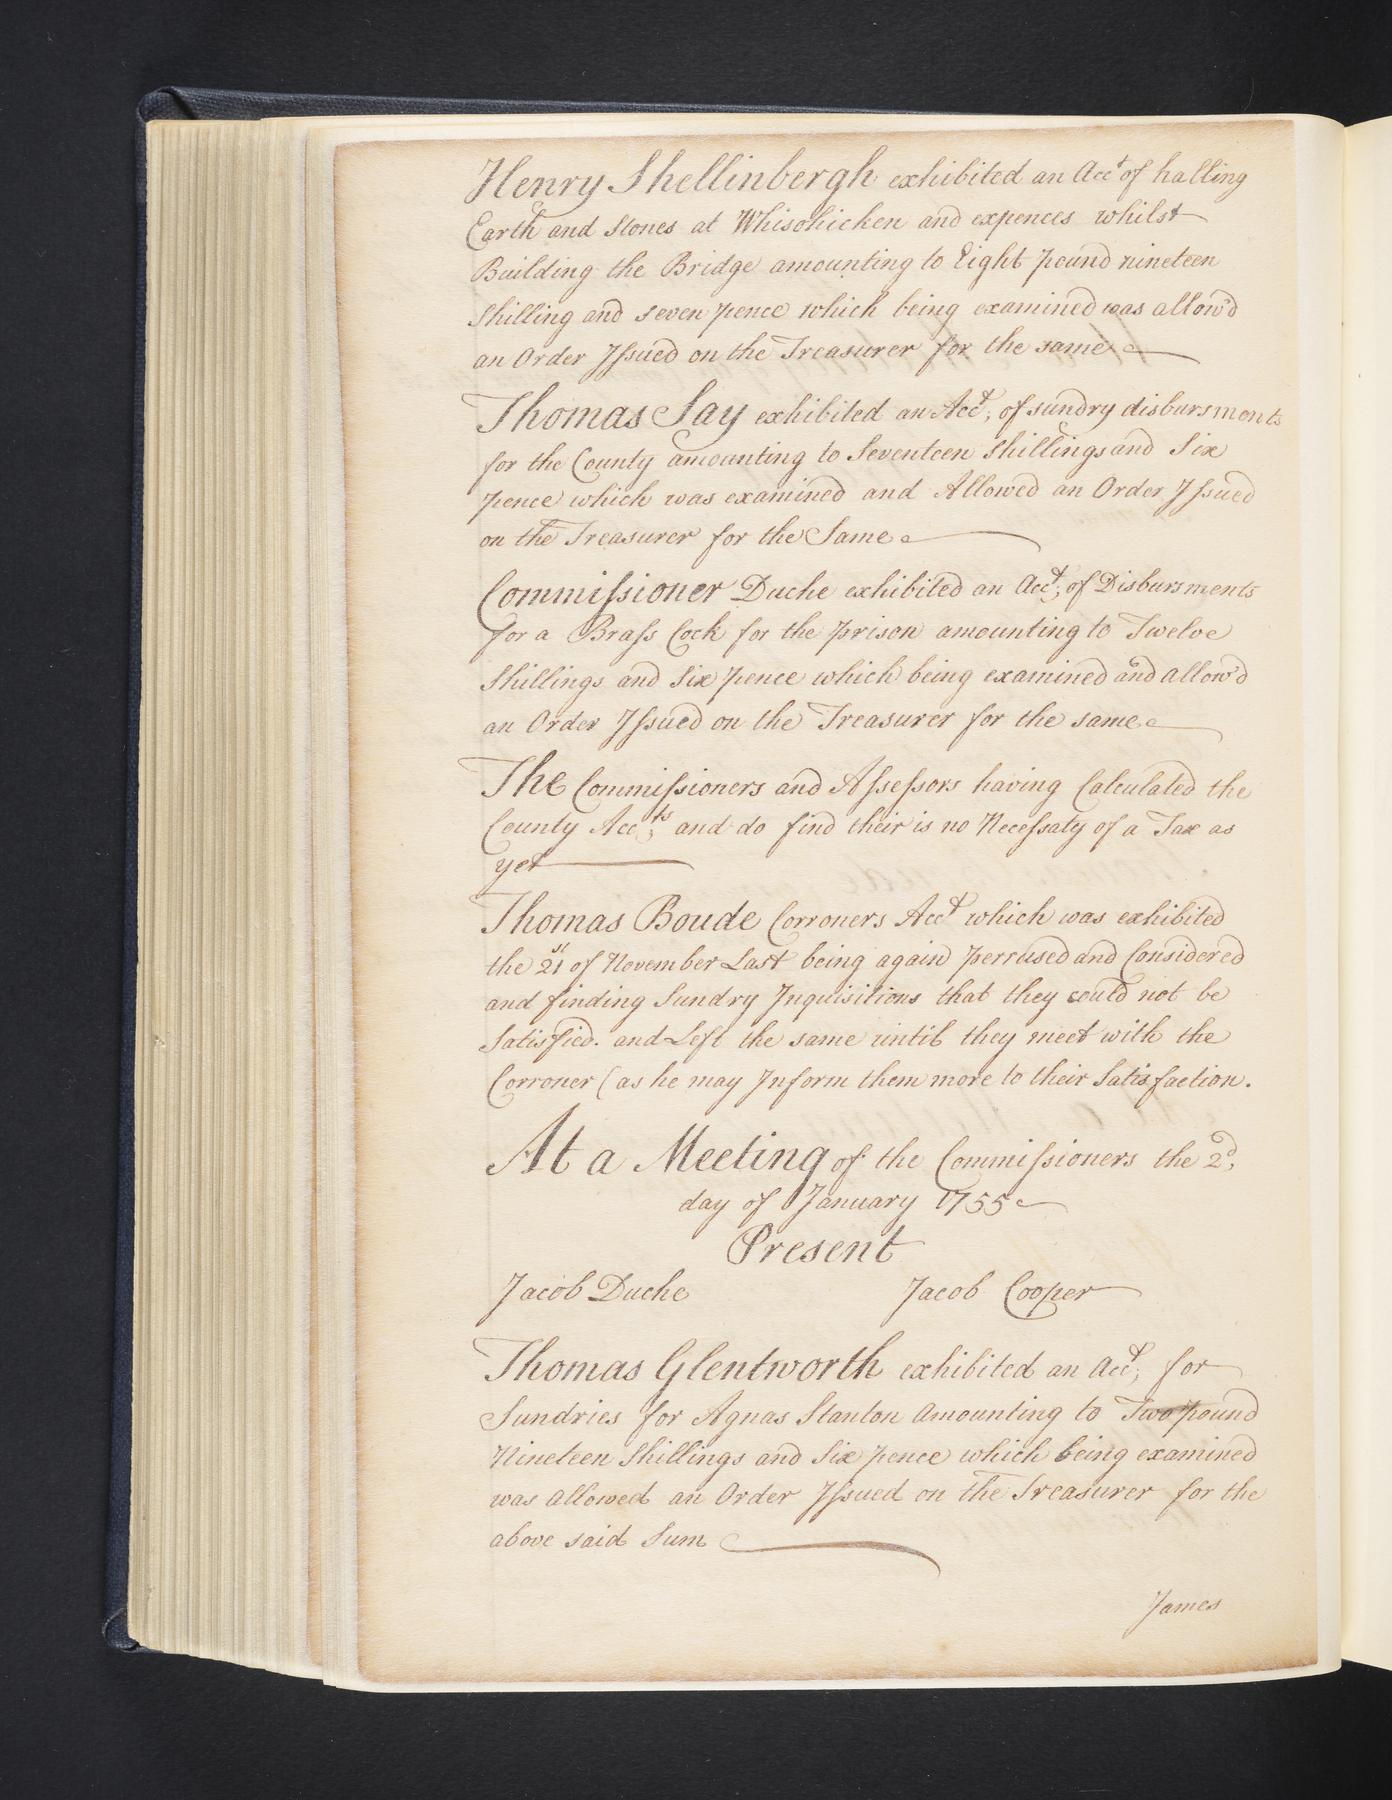 Henry Shellinbergh exhibited an Acct of halling
Earth and Stones at Whisohicken and expences whilst
Building the Bridge amounting to Eight pound nineteen
Shilling and seven pence which being examined was allow'd
an Order Issued on the Treasurer for the same
Thomas Say exhibited an Acct; of sundry disbursments
for the County amounting to Seventeen Shillings and Six
pence which was examined and Allowed an Order Issued
on the Treasurer for the Same
Commissioner Duche exhibited an Acct; of Disbursments
for a Brass Cock for the prison amounting to Twelve
Shillings and Six pence which being examined and allow'd
an Order Issued on the Treasurer for the same
The Commissioners and Assessors having Calculated the
County Accts; and do find their is no Necessaty of a Tax as
yet
Thomas Boude Corroners Acct which was exhibited
the 21st of November Last being again perrused and Considered
and finding Sundry Inquisitions that they could not be
Satisfied. and Left the same until they meet with the
Corroner (as he may Inform them more to their Satisfaction.
At a Meeting of the Commissioners the 2d,
day of January 1755
Present
Jacob Duche Jacob Cooper
Thomas Glentworth exhibited an Acct, for
Sundries for Agnas Stanton Amounting to Two pound
Nineteen Shillings and Six pence which being examined
was allowed an Order Issued on the Treasurer for the
above said Sum
James